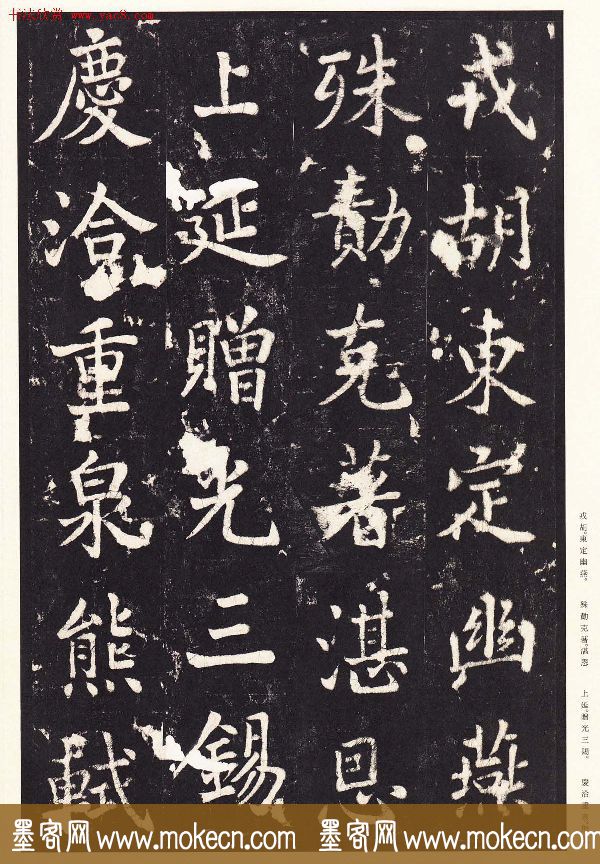 书法欣赏 www.yac8.com
戎胡東定幽燕
殊勛克著湛恩
上延贈光三錫
慶洽重泉熊軾
戎胡。東定幽燕。 殊勛克著。湛恩 上延。贈光三錫。 慶洽
墨客网 www.mokecn.com 墨客网 www.mokecn.com